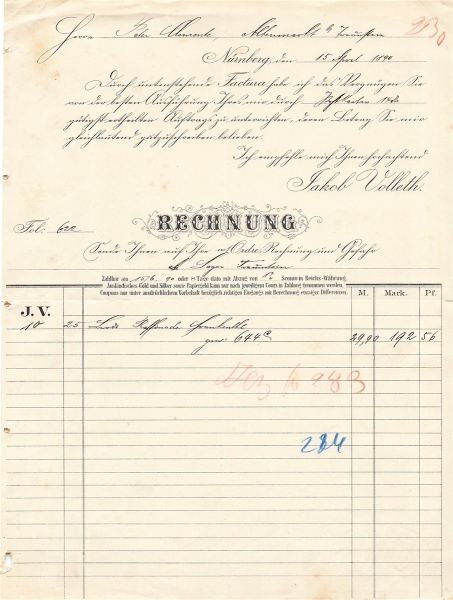 Herrn Peter Clemente Altenmarkt b/ Traunstein 2830
Nürnberg, den 15 April 1890
Durch untenstehende Factura habe ich das Vergnügen Sie
von der besten Ausführung Ihres mir durch
gütigst ertheilten Auftrags zu unterrichten, deren Betrag Sie mir
gleichlautend gutzuschreiben belieben.
Ich empfehle mich Ihnen hochachtend
Jakob Volleth.
RECHNUNG
Fol: 622
Sende Ihnen auf Ihre Ordre, Rechnung und Gefahr
Lager Traunstein
Zahlbar am 15/6. oder Tage dato mit Abzug von % Sconto in Reichs-Währung.
Ausländisches Gold und Silber sowie Papiergeld kann nur nach jeweiligem Cours in Zahlung genommen werden.
Coupons nur unter ausdrücklichem Vorbehalt bezüglich richtigen Eingangs mit Berechnung etwaiger Differenzen.
M. Mark. Pf.
J. V.
10 25 Raffinade
644 29,90 192 56
283
284